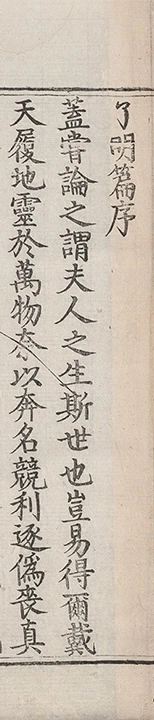 了明篇序
蓋嘗論之謂夫人之生斯世也豈易得爾戴
天履地靈於萬物奈以奔名競利逐偽喪真